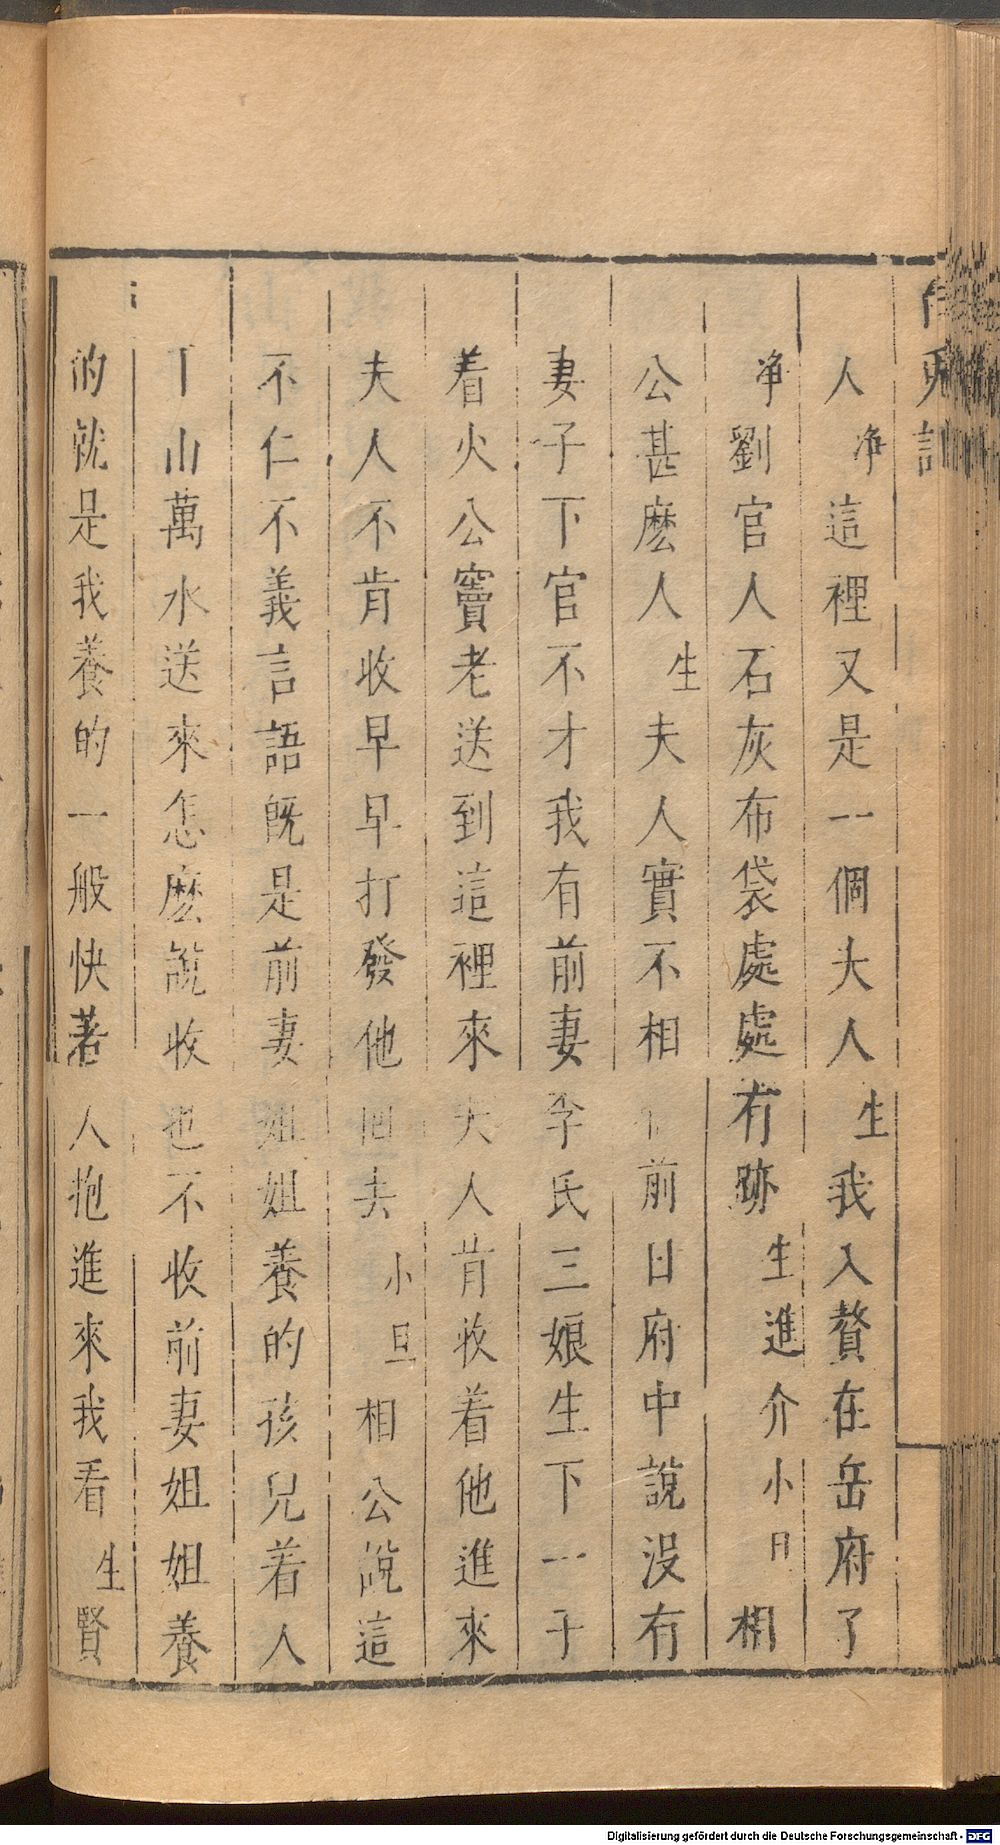 人淨這裡又是一個夫人生我入贅在岳府了
淨劉官人石灰布袋處處有跡生進介小旦相
公甚麽人生夫人實不相前日府中說沒有
妻子下官不才我有前妻李氏三娘生下一子
着火公竇老送到這裡來夫人肯收着他進來
夫人不肯收早早打發他回去小旦相公說這
不仁不義言語既是前妻姐姐養的孩兒着人
千山萬水送來怎麽說收也不收前妻姐姐養
的就是我養的一般快著人抱進來我看生賢
Digitalisierung gefördert durch die Deutsche Forschungsgemeinschaft - DFG